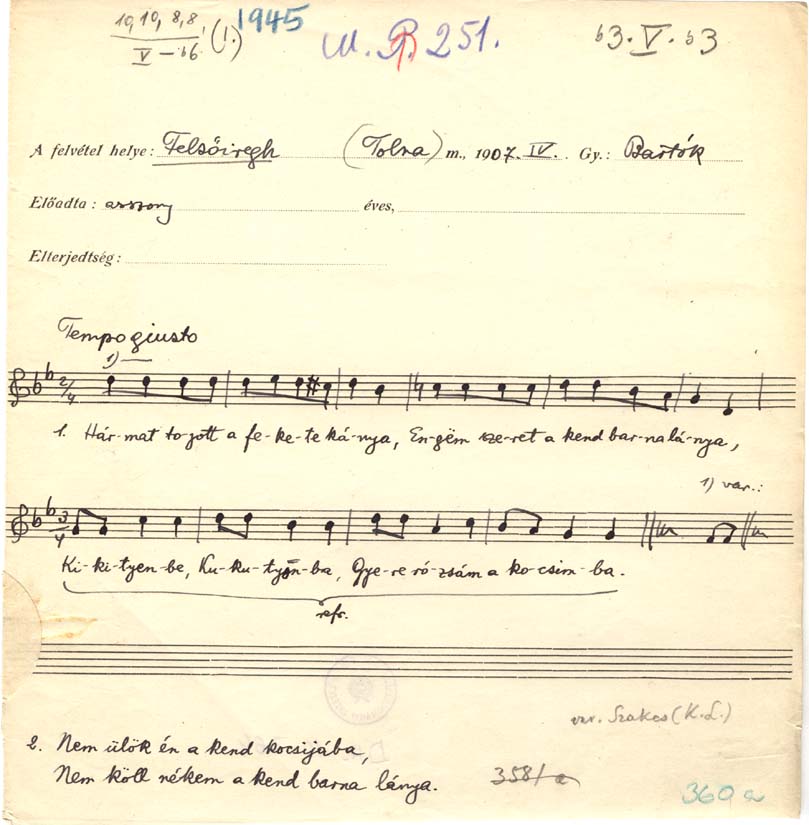 10, 10, 8, 8, (1.) 1945 M. R. 251. b3. V. b3
V – b6
A felvétel helye: Felsőiregh (Tolna) m., 1907. IV. Gy.: Bartók
Előadta: asszony éves,
Elterjedtség:
Tempo giusto
1)
2/4
1. Hár-mat to-jott a fe-ke-te ká-nya, En-gëm sze-ret a kend bar-na lá-nya,
1) var.:
3/4
Ki-ki-tyen-be, Ku-ku-tyën-ba, Gye-re ró-zsám a ko-csim-ba.
refr.
var. Szakcs (K. L.)
2. Nem ülök én a kend kocsijába,
Nem köll nékem a kend barna lánya.
358/a
360 a